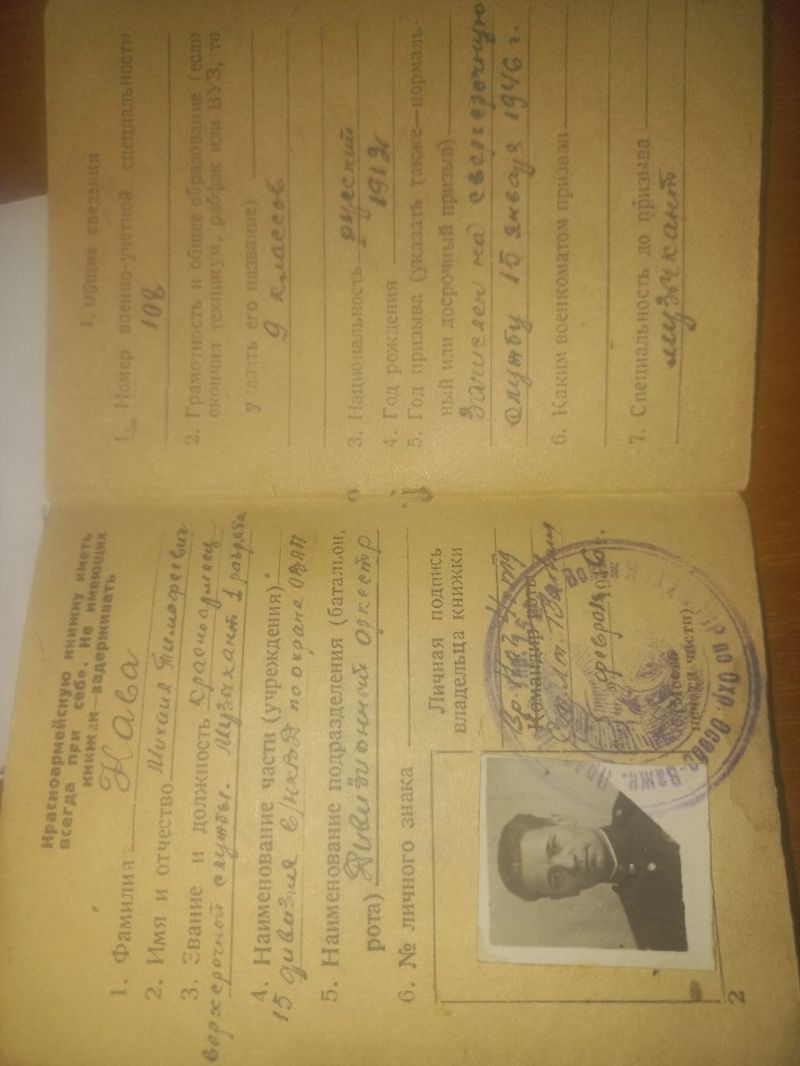 Красноармейскую книжку иметь
всегда при себе. Не имеющих
книжки задерживать
1. Фамилия Кава
2. Имя и отчество Михаил Тимофеевич
3. Звание и должность красноармеец
сверхсрочной службы. Музыкант 1 разряда
4. Наименование части (учреждения)
15 дивизия в/НКВД по охране
5. Наименование подразделения (батальон,
рота) Дивизионный оркестр
6. № личного знака
Личная подпись
владельца книжки
Командир роты
Ст. Лт.
5 февраля 1946 г.
(Место
печати части)
2
I. Общие сведения
1. Номер военно-учетной специальности
108
2. Грамотность и общее образование (если
окончил техникум, рабфак или ВУЗ, то
указать его название)
9 классов
3. Национальность русский
4. Год рождения 1912
5. Год призыва (указать также—нормаль-
ный или досрочный призыв)
Зачислен на сверхсрочную
службу 15 января 1946 г.
6. Каким военкоматом призван
7. Специальность до призыва
музыкант